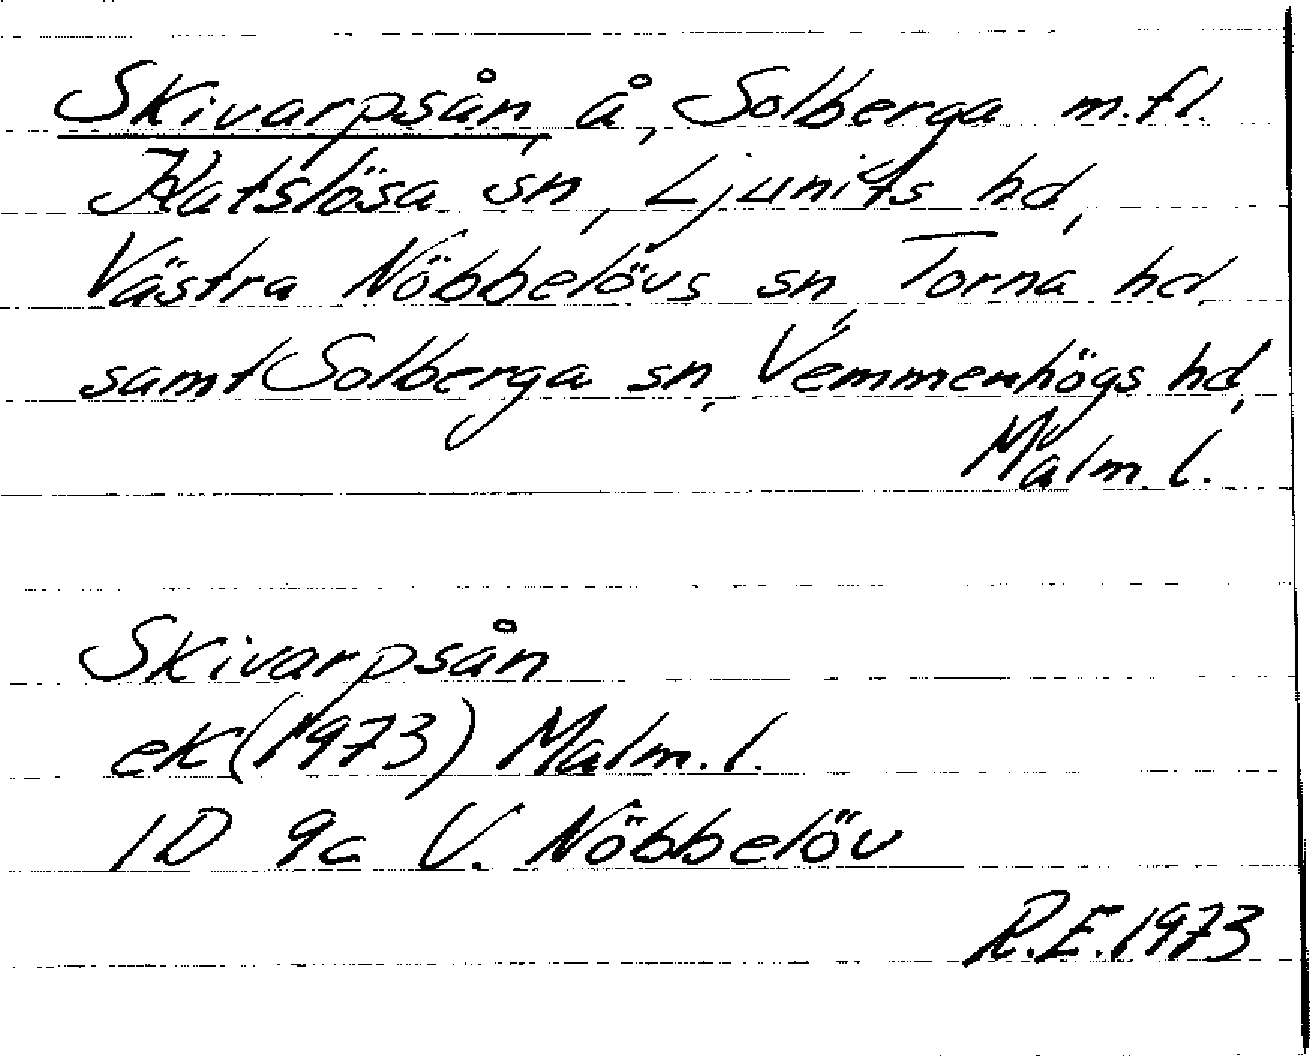 Skivarpsån, å, Solberga m.fl.
Katslösa sn, Ljunits hd,
Västra Nöbbelövs sn, Torna hd
samt Solberga sn, Vemmenhögs hd,
Malm. l.
Skivarpsån
ek (1973) Malm. l.
1D 9c V. Nöbbelöv
R.E. 1973